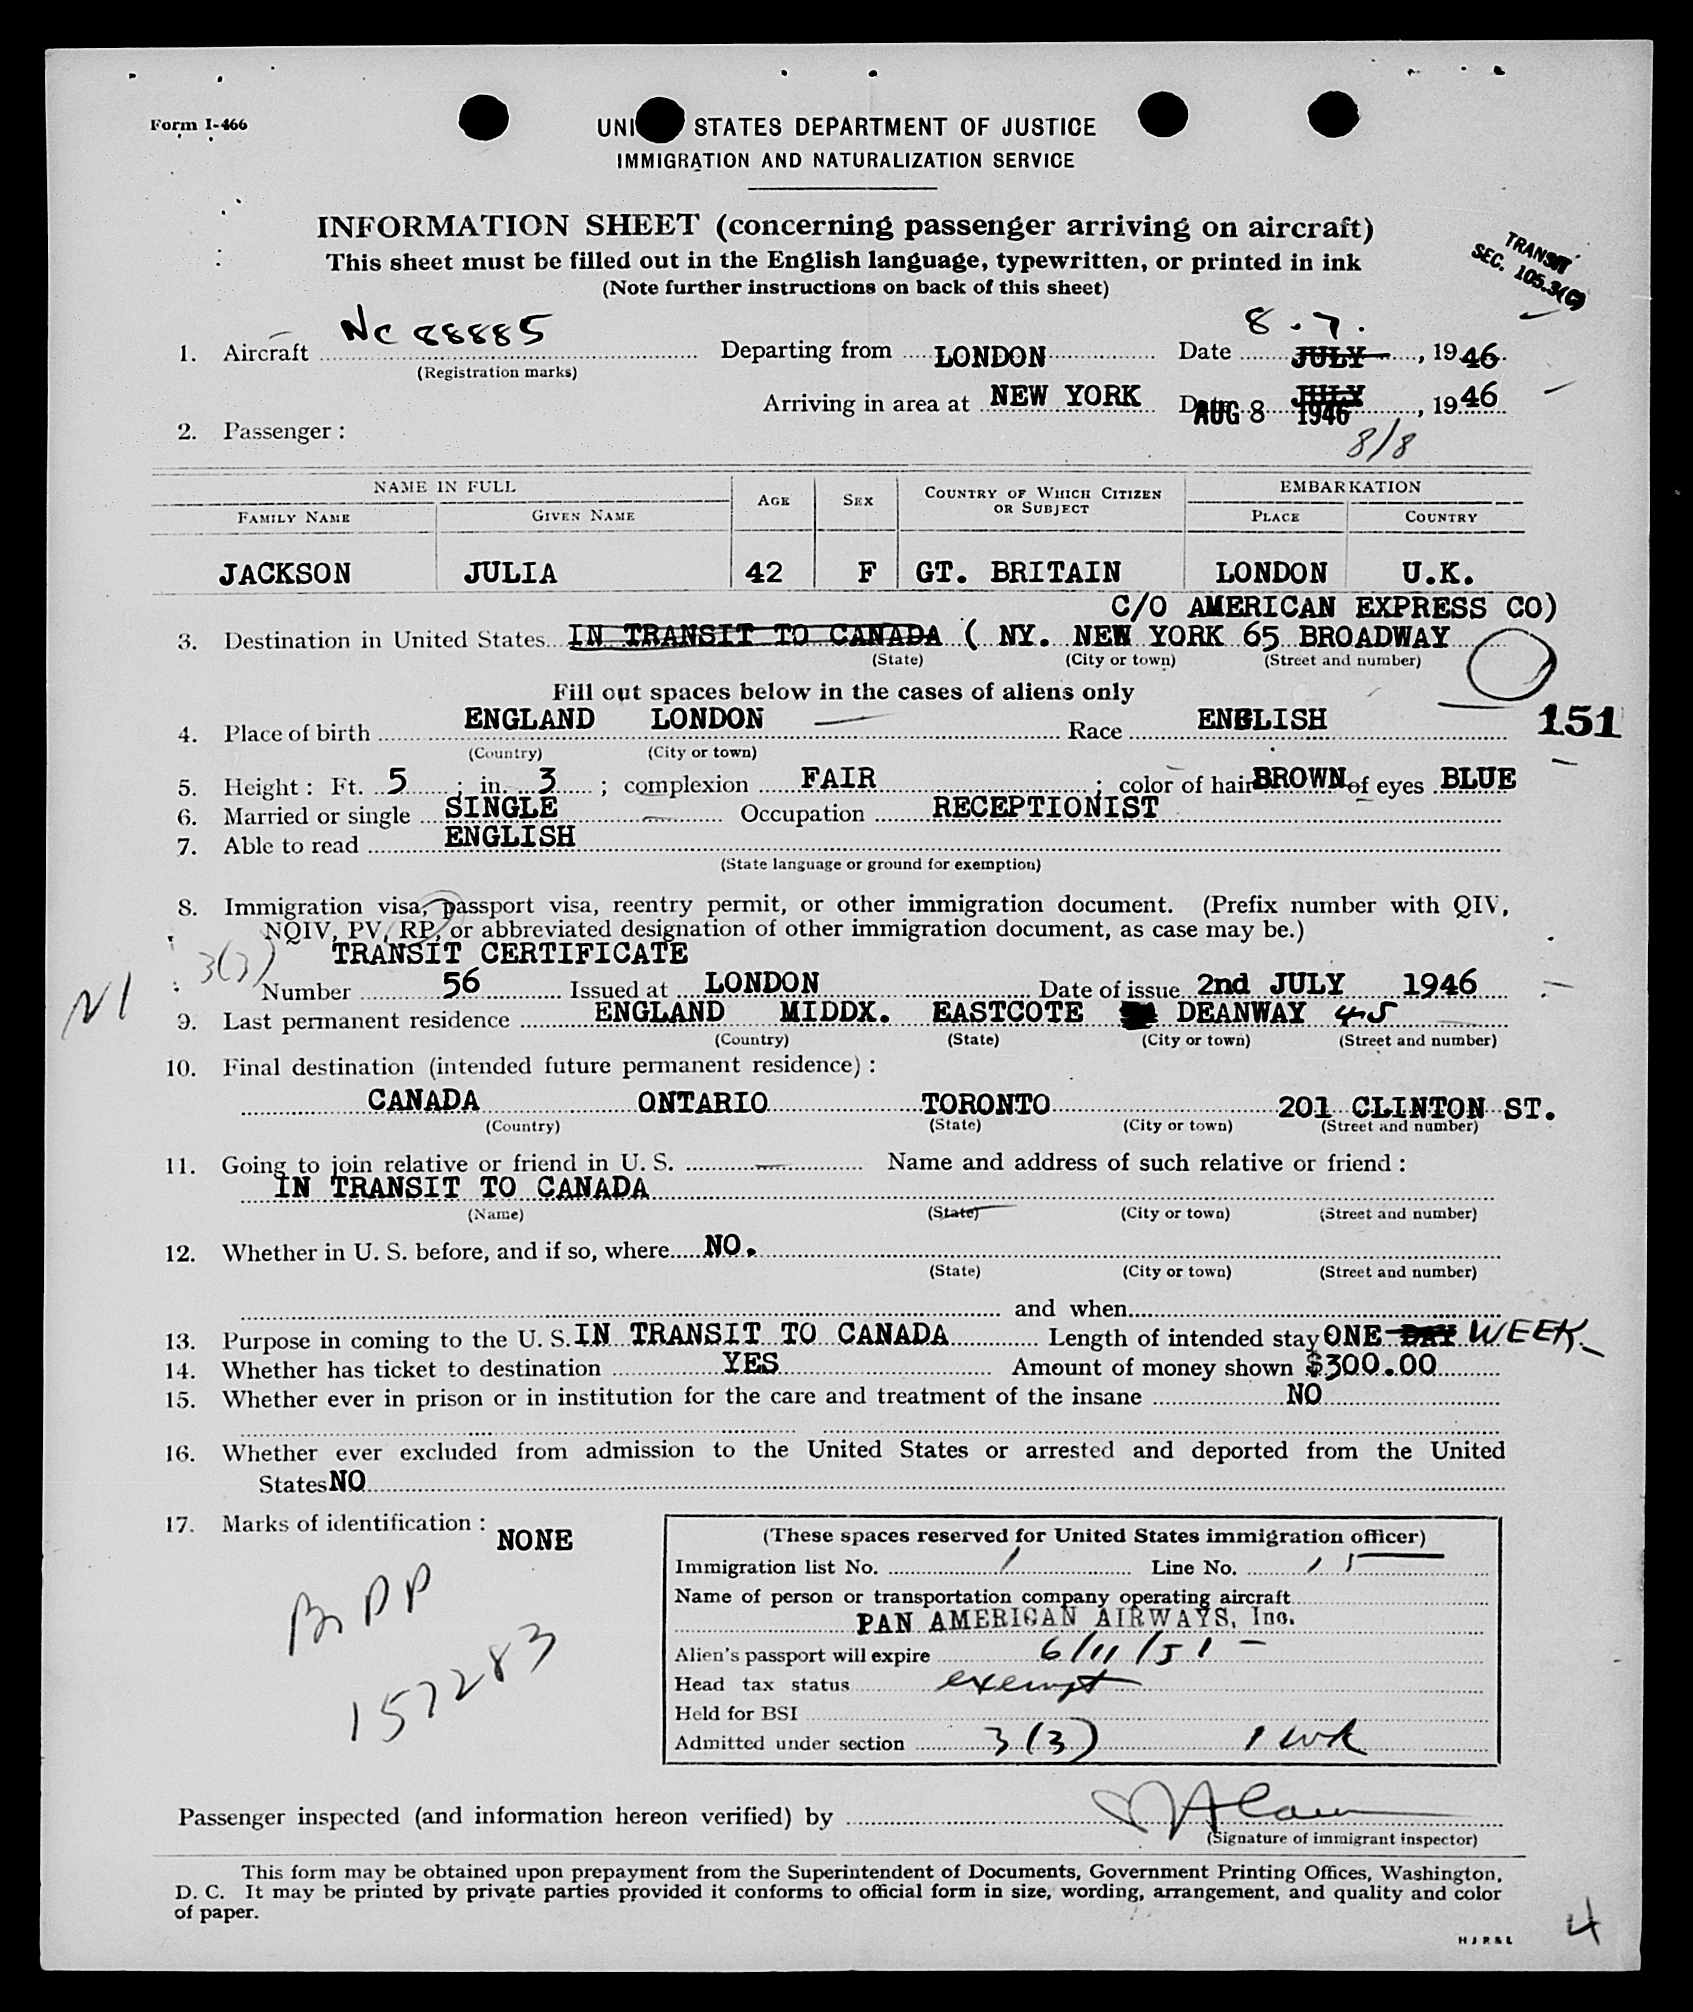 Form I-466
UNI STATES DEPARTMENT OF JUSTICE
IMMIGRATION AND NATURALIZATION SERVICE
INFORMATION SHEET (concerning passenger arriving on aircraft)
This sheet must be filled out in the English language, typewritten, or printed in ink
(Note further instructions on back of this sheet)
TRANSIT
SEC. 105.3(C)
1. Aircraft NC 88885 Departing from LONDON Date 8.7. JULY, 1946.
(Registration marks)
Arriving in area at NEW YORK Date AUG 8 1946 JULY, 1946
8/8
2. Passenger:
NAME IN FULL AGE SEX COUNTRY OF WHICH CITIZEN OR SUBJECT EMBARKATION
FAMILY NAME GIVEN NAME PLACE COUNTRY
JACKSON JULIA 42 F GT. BRITAIN LONDON U.K.
C/O AMERICAN EXPRESS CO)
3. Destination in United States IN TRANSIT TO CANADA ( NY. NEW YORK 65 BROADWAY
(State) (City or town) (Street and number)
Fill out spaces below in the cases of aliens only
4. Place of birth ENGLAND LONDON Race ENGLISH
151
(Country) (City or town)
5. Height: Ft. 5; in. 3; complexion FAIR; color of hair BROWN of eyes BLUE
6. Married or single SINGLE Occupation RECEPTIONIST
7. Able to read ENGLISH
(State language or ground for exemption)
8. Immigration visa, passport visa, reentry permit, or other immigration document. (Prefix number with QIV,
NQIV, PV, RP, or abbreviated designation of other immigration document, as case may be.)
3(3) TRANSIT CERTIFICATE
Number 56 Issued at LONDON Date of issue 2nd JULY 1946
9. Last permanent residence ENGLAND MIDDX. EASTCOTE DEANWAY 45
(Country) (State) (City or town) (Street and number)
10. Final destination (intended future permanent residence):
CANADA ONTARIO TORONTO 201 CLINTON ST.
(Country) (State) (City or town) (Street and number)
11. Going to join relative or friend in U. S. Name and address of such relative or friend:
IN TRANSIT TO CANADA
(Name) (State) (City or town) (Street and number)
12. Whether in U. S. before, and if so, where NO.
(State) (City or town) (Street and number)
and when
13. Purpose in coming to the U. S. IN TRANSIT TO CANADA Length of intended stay ONE DAY WEEK
14. Whether has ticket to destination YES Amount of money shown $300.00
15. Whether ever in prison or in institution for the care and treatment of the insane NO
16. Whether ever excluded from admission to the United States or arrested and deported from the United
States NO
17. Marks of identification: NONE
157283
(These spaces reserved for United States immigration officer)
Immigration list No. 1 Line No. 15
Name of person or transportation company operating aircraft
PAN AMERICAN AIRWAYS, Inc.
Alien's passport will expire 6/11/51
Head tax status exempt
Held for BSI
Admitted under section 3(3) 1 wk
Passenger inspected (and information hereon verified) by
(Signature of immigrant inspector)
This form may be obtained upon prepayment from the Superintendent of Documents, Government Printing Offices, Washington,
D. C. It may be printed by private parties provided it conforms to official form in size, wording, arrangement, and quality and color
of paper.
4
H J R & L